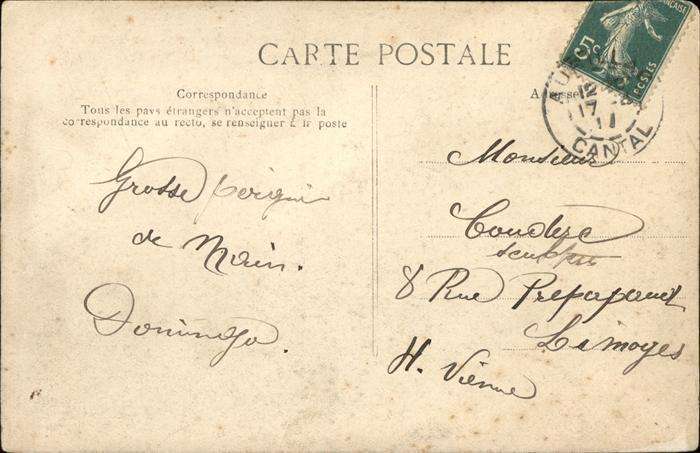 CARTE POSTALE
Correspondance
Tous les pays étrangers n'acceptent pas la
correspondance au recto, se renseigner à la poste
Grosse
de Main.
Domingo.
Adresse
Monsieur
Couderc
sculpteur
8 Rue Prépapaud
Limoges
H. Vienne
5c
POSTES
12
17
11
CANTAL